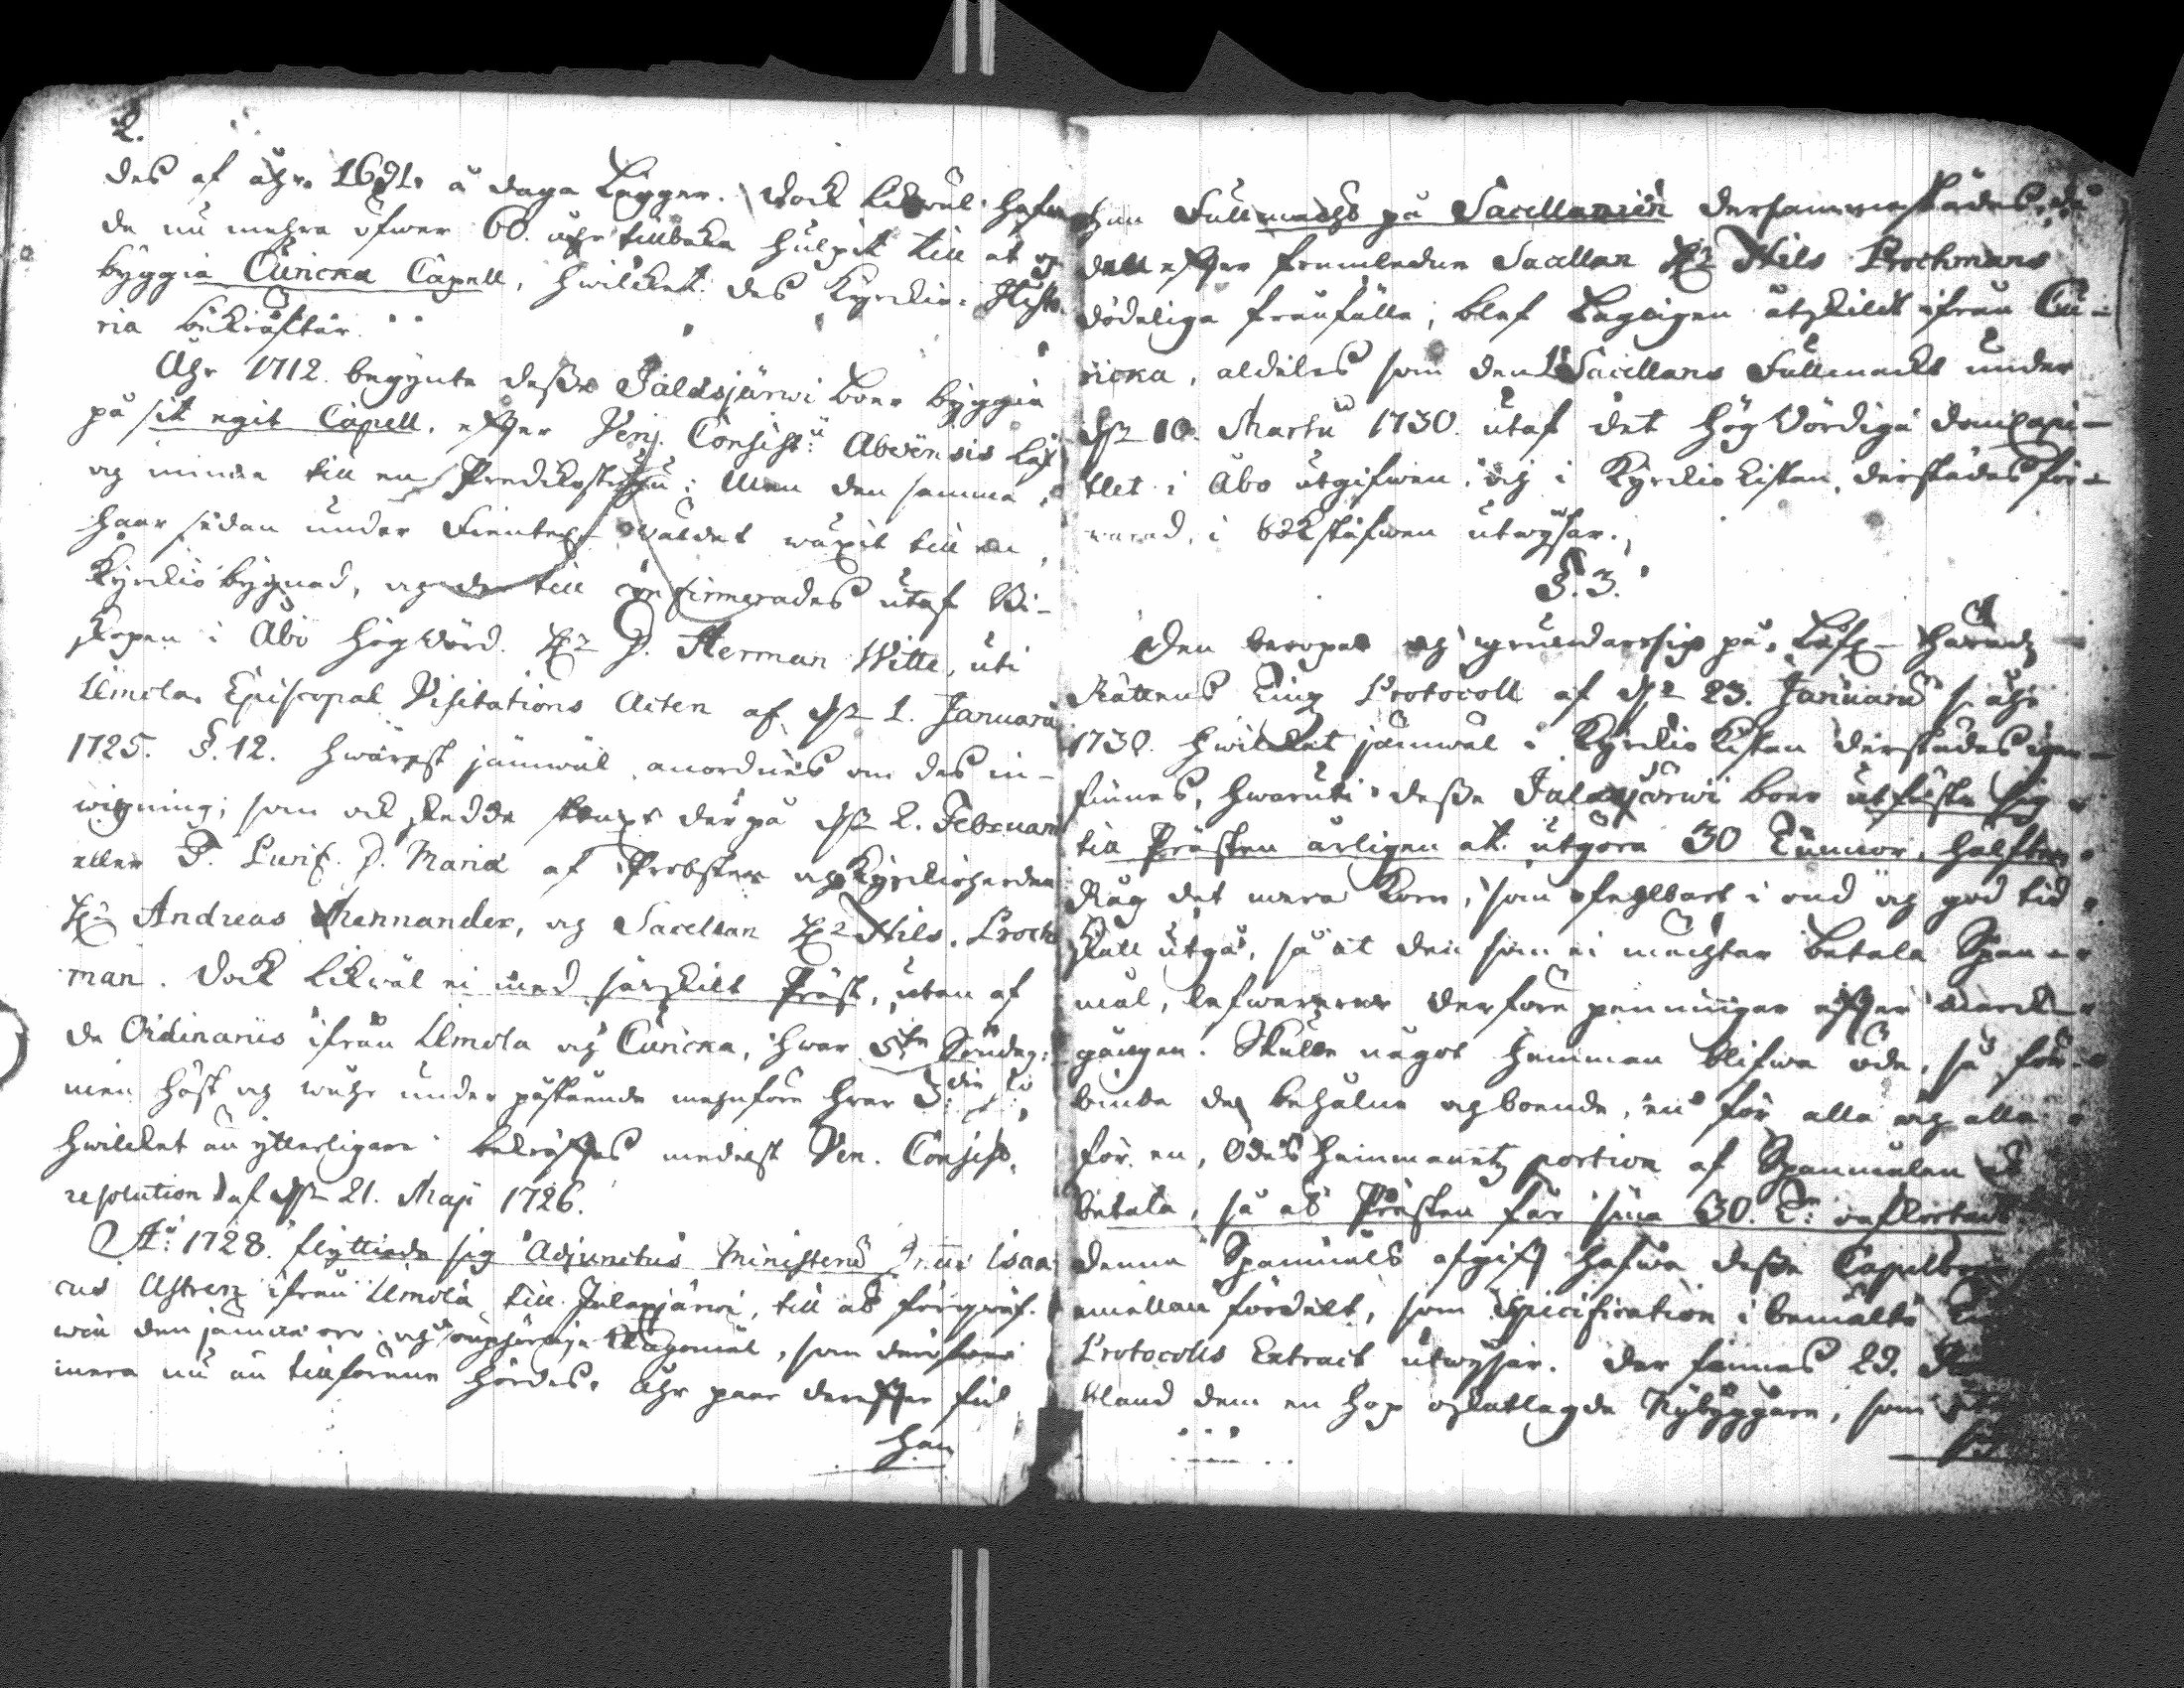 2.
des af åhr 1691. å daga lägger. Dock likwäl hafwa
de nu mehra öfwer 60. åhr tillbaka hulpit till at up
byggia Curicka Capell, hwilcket des Kyrckio-Histo-
ria bekräftar.
Åhr 1712. begynte desse Jalasjärwi boer byggia
på sit egit Capell, effter Ven. Consist: Aboënsis låf
og minne till en Predikostugu; Men den samma
haar sedan under Fientes wäldet wäxit till en
Kyrckio bygnad, og der till confirmerades utaf Bi-
skopen i Åbo Högwörd. Hr D. Herman Witte, uti
Ilmola Episcopal Visitations Acten af d. 1. Januarii
1725. §. 12. hwarest jämwäl anordnes om des in-
wigning; som ock skedde straxt derpå d. 2. Februarii
eller F. Purif. D. Mariæ af Probsten og Kyrckioherden
Hr Andreas Mennander, og Sacellan Hr Nils Proch-
man. Dock likwäl ei med särskilt Präst, utan af
de Ordinariis ifrån Ilmola og Curicka, hwar 5te Söndag;
men höst og wåhr under påstående menföre hwar 3die
hwilcket än ytterligare bekräfftes medelst Ven. Consist.
resolution af d. 21. Maji 1726.
Ao: 1728. flyttiade sig Adjunctus Ministerii Isaa-
cus Astren ifrån Ilmola till Jalasjärwi, till at
win den samma og Klagomål, som
mera nu än tillförene hördes. Åhr paar dereffter fick
han
han Fullmacht på Sacellanien dersammastädes, då
dett effter framledne Sacellan Hr Nils Prochmans
dödeliga frånfälle, blef lageligen åtskildt ifrån Cu-
ricka, aldeles som den 1. Sacellans Fullmacht under
d. 10. Martii 1730. utaf det Högwördiga Domcapi-
tlet i Åbo utgifwen, og i Kyrckio Kistan derstädes för-
warad, i bokstafwen utwyser.
§. 3.
Den beropar og grundar sig på, Låfl. Härads
Rättens Ting Protocoll af d. 23. Januarii s. åhr
1730. hwilcket jämwäl i Kyrckio Kistan derstädes igen-
finnes, hwaruti desse Jalasjärwi boer utfäste sig
till Prästen årligen at utgöra 30 Tunnor, hälften
Råg det mera Korn, som ofehlbart i ond og god tid
skall utgå, så at den som ei mechtar betala Span-
mål, lefwererer derföre penningar effter marck-
gången. Skulle något Hemman blifwa öde, så för-
binda de behålne og boende, en för alla og alla
för en, Ödes Hemmanetz portion af Spanmålen at
betala, så at Prästen får sina 30. T: oafkortade
denna Spanmåls afgifft hafwa desse Capellboer
emellan fördelt, som Specification i bemälte Ting
Protocolls Extract utwyser. Der finnes 29.
bland dem en hop oskatlagde Nybyggare, som